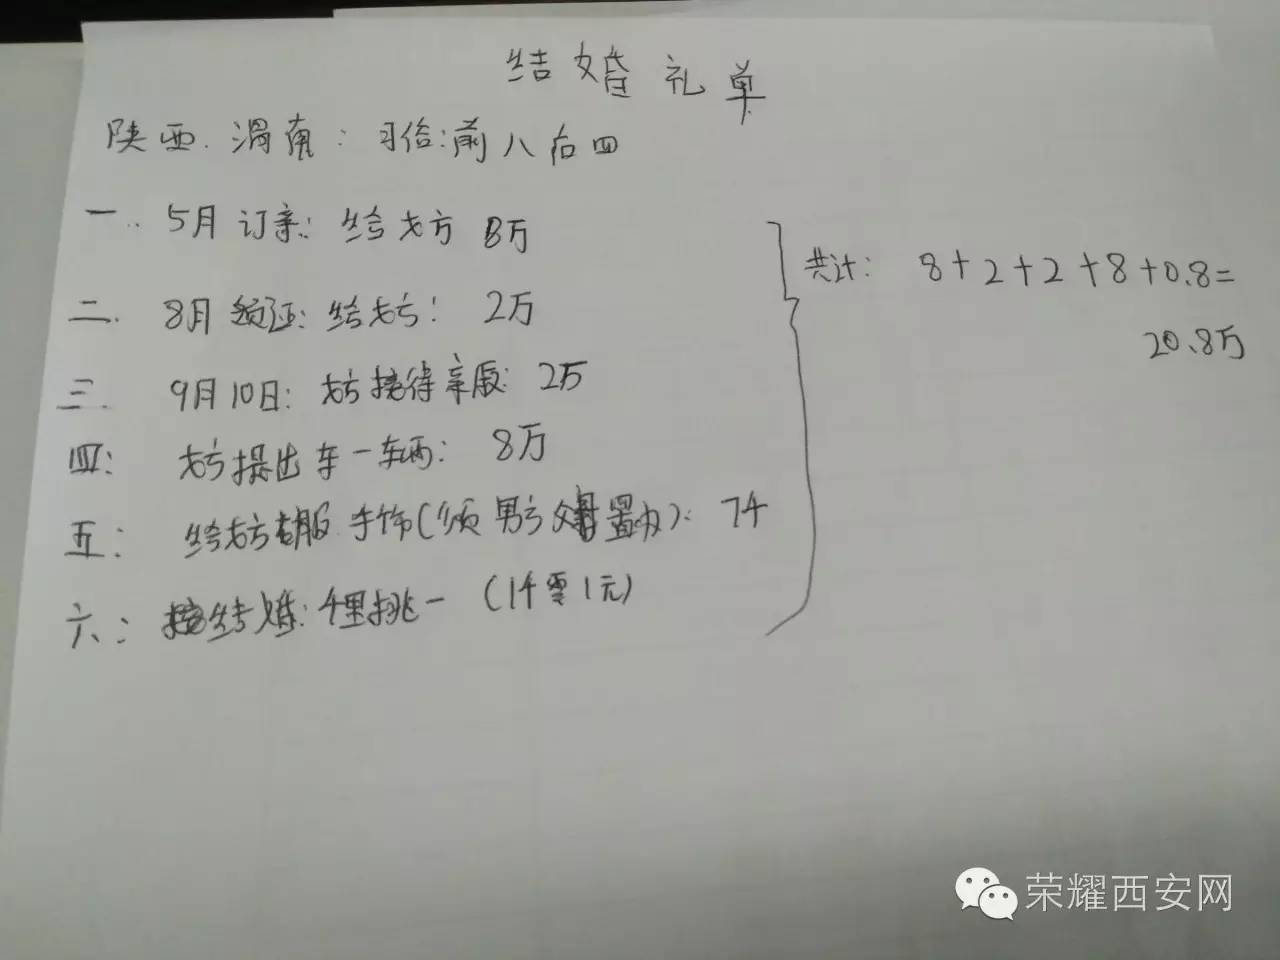 结婚礼单
陕西.渭南:习俗:前八后四
一. 5月订亲:给女方 8万
二. 8月领证:给女方: 2万
三. 9月10日:女方接待亲殷: 2万
四: 女方提出车一车辆: 8万
五: 给女方衣服.手饰(须男方父母置办): 7千
六: 按结婚:千里挑一 (1千零1元)
共计: 8+2+2+8+0.8=
20.8万
荣耀西安网